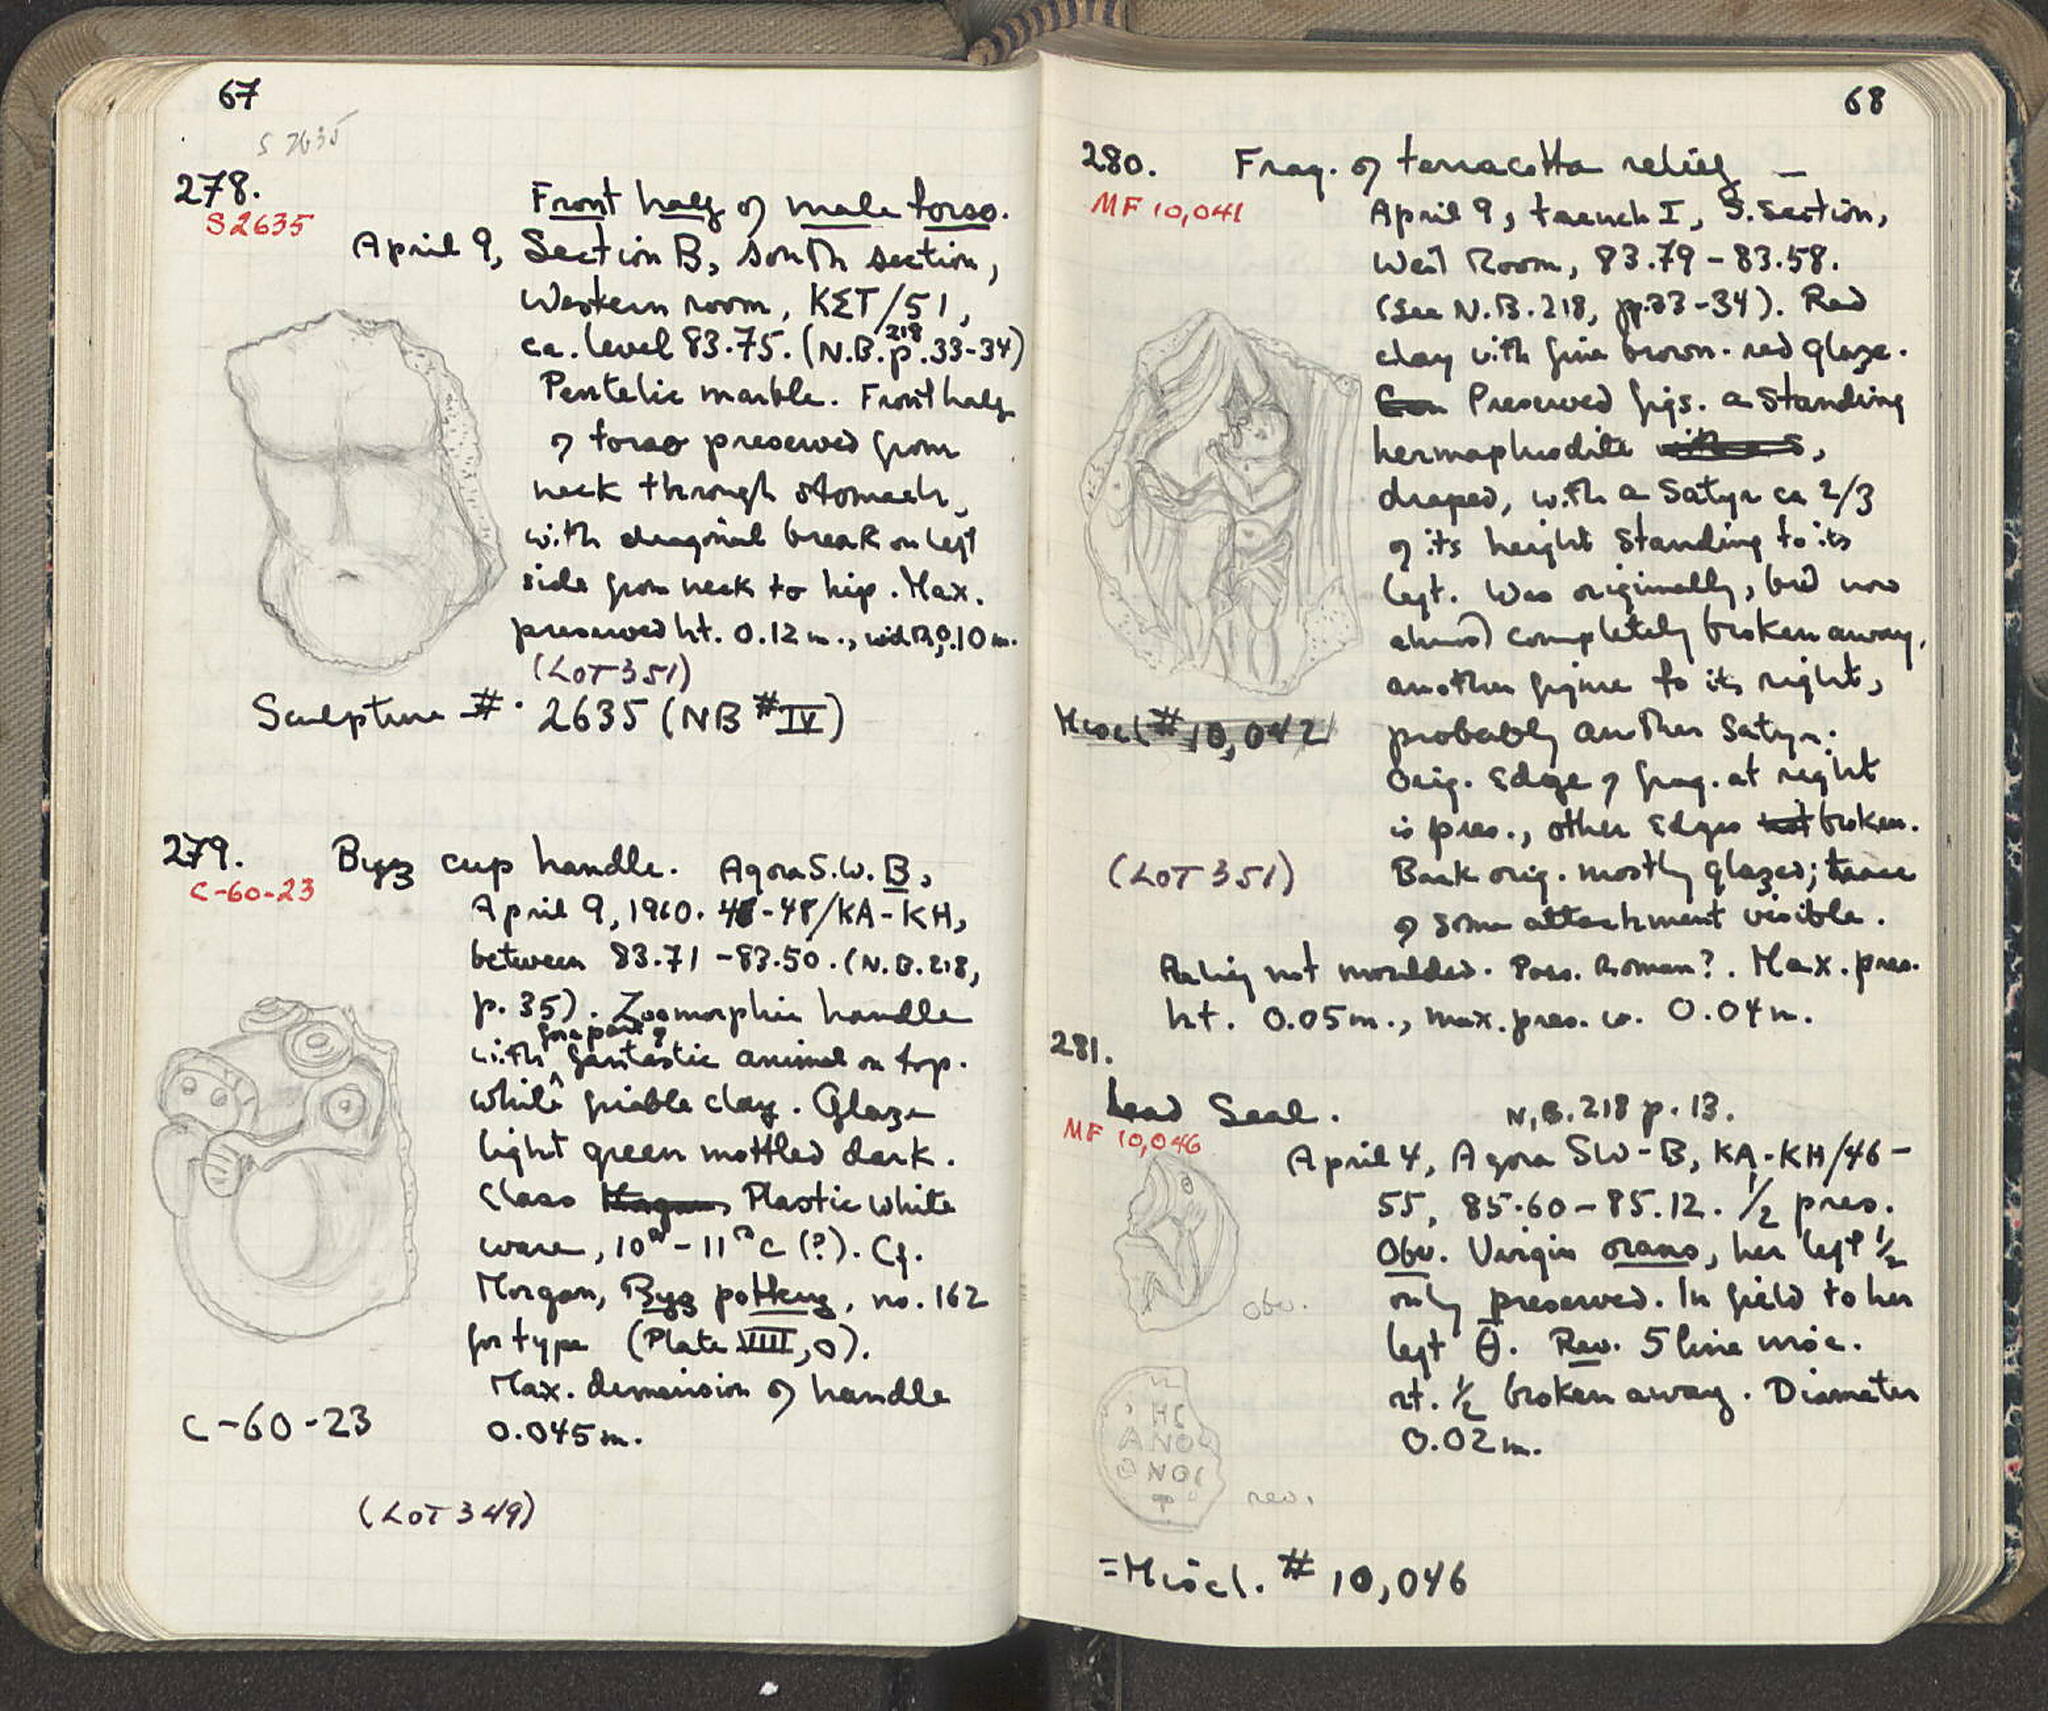 67
S 2635
278.
S2635
Front half of male torso.
April 9, Section B, south section,
Western room, KΣT/51,
ca. level 83.75. (N.B. 218 p. 33-34)
Pentelic marble. Front half
of torso preserved from
neck through stomach,
with diagonal break on left
side from neck to hip. Max.
preserved ht. 0.12 m., width, 0.10 m.
(LOT 351)
Sculpture #. 2635 (NB # IV)
279.
C-60-23
Byz cup handle. Agora S.W. B,
April 9, 1960. 46-48/KA-KH,
between 83.71-83.50. (N.B. 218,
p. 35). Zoomorphic handle
forepart of
with fantastic animal on top.
White friable clay. Glaze
light green mottled dark.
Class Plastic white
ware, 10th-11th c (?). Cf.
Morgan, Byz pottery, no. 162
for type (Plate VIIII, O).
Max. demension of handle
0.045 m.
C-60-23
(LOT 349)
68
280.
MF 10,041
Frag. of terracotta relief —
April 9, trench I, S. Section,
West Room, 83.79-83.58.
(See N.B. 218, pp. 33-34). Red
clay with fine brown-red glaze.
Preserved figs. a standing
hermaphrodite ,
draped, with a Satyr ca 2/3
of its height standing to its
left. Was originally, but now
almost completely broken away,
another figure to its right,
probably another Satyr.
Orig. edge of frag. at right
is pres., other edges not broken.
Back orig. mostly glazed; trace
of some attachment visible.
Relief not moulded. Poss. Roman?. Max. pres.
ht. 0.05 m., max. pres. w. 0.04 m.
Miscl # 10,042
(LOT 351)
281.
Lead Seal. N.B. 218 p. 13.
MF 10,046
April 4, Agora SW-B, KA-KH/46-
55, 85.60-85.12. 1/2 pres.
Obv. Virgin orans, her left 1/2
only preserved. In field to her
left Θ̄. Rev. 5 line insc.
rt. 1/2 broken away. Diameter
0.02 m.
obv.
HC
ANO
ΘNOC
rev.
=Miscl. # 10,046